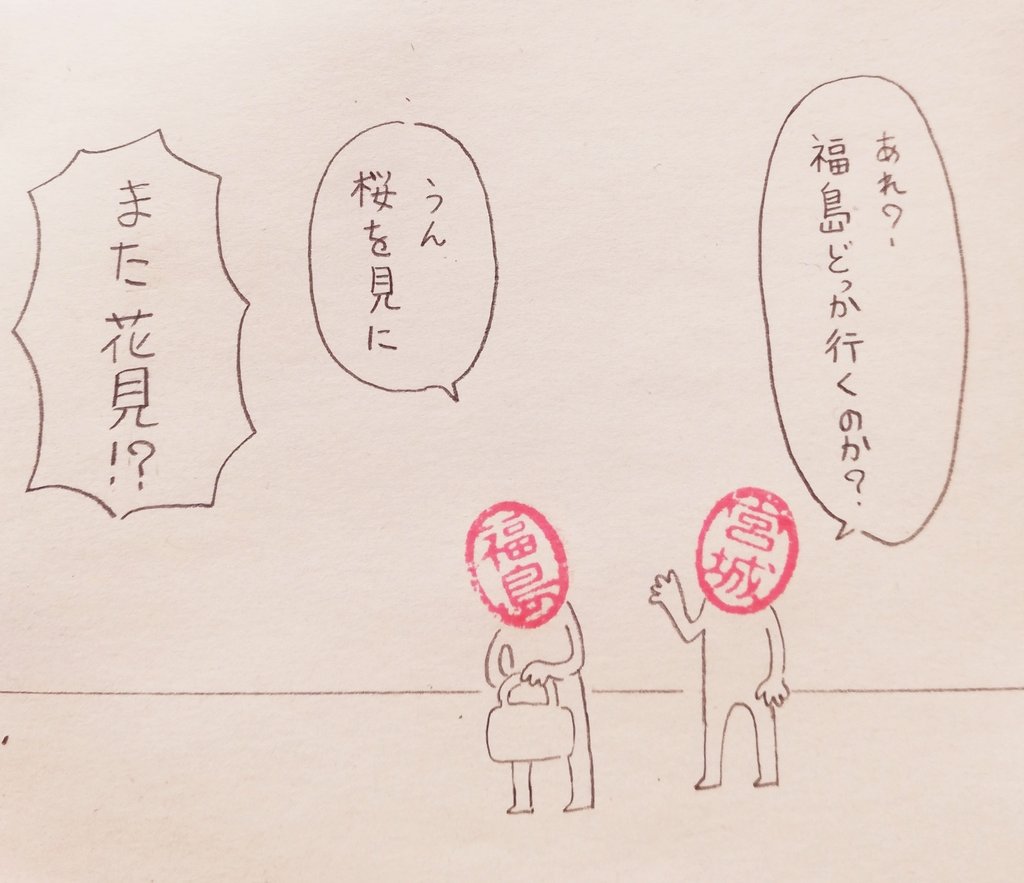 あれ?
福島どっか行くのか?
うん
桜を見に
また花見!?
福島
宮城